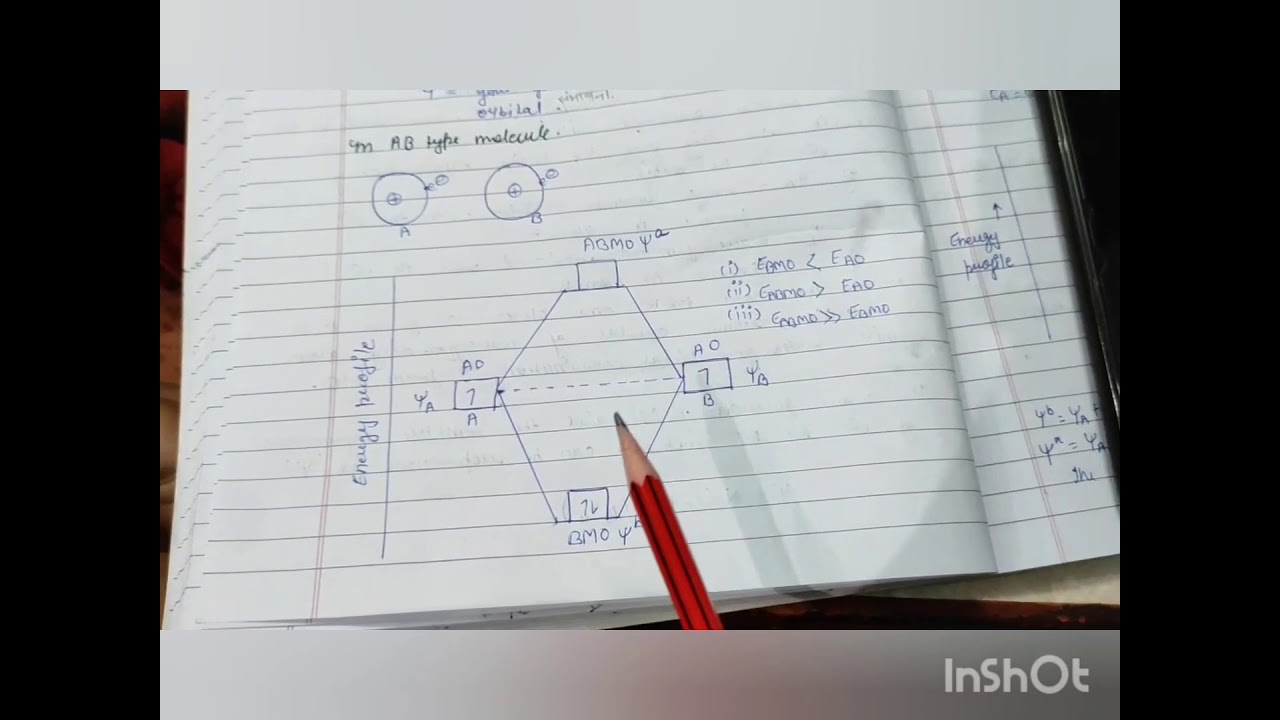 orbital.
In AB type molecule.
A
B
ABMO ψᵃ
(i) EBMO < EAO
(ii) EABMO > EAO
(iii) EABMO >> EBMO
Energy profile
AO
ψA
A
AO
ψB
B
BMO ψᵇ
Energy
profile
ψᵇ = ψA +
ψᵃ = ψA
The
InShOt